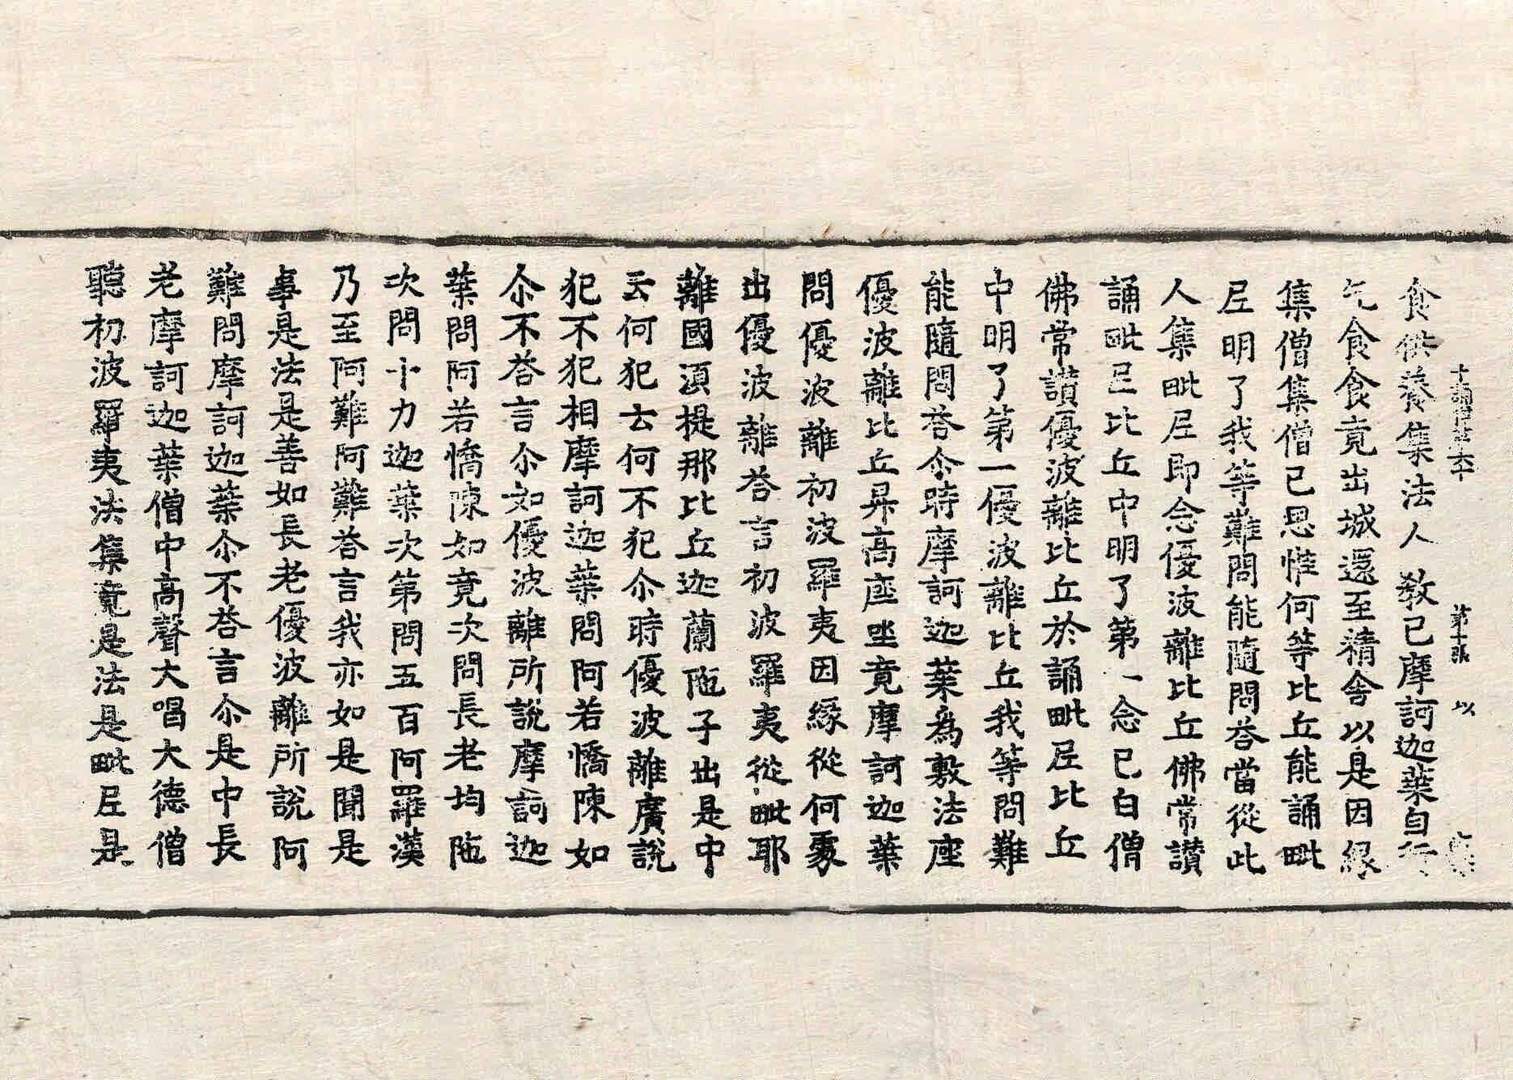 十誦律 第十張 以
食供養集法人敎已摩訶迦葉自行
乞食食竟出城還至精舍以是因緣
集僧集僧已思惟何等比丘能誦毗
尼明了我等難問能隨問荅當從此
人集毗尼即念優波離比丘佛常讃
誦毗尼比丘中明了第一念已白僧
佛常讃優波離比丘於誦毗尼比丘
中明了第一優波離比丘我等問難
能隨問荅尒時摩訶迦葉為敷法座
優波離比丘昇高座坐竟摩訶迦葉
問優波離初波羅夷因緣從何處
出優波離荅言初波羅夷從毗耶
離國湏提那比丘迦蘭陁子出是中
云何犯云何不犯尒時優波離廣說
犯不犯相摩訶迦葉問阿若憍陳如
尒不荅言尒如優波離所說摩訶迦
葉問阿若憍陳如竟次問長老均陁
次問十力迦葉次第問五百阿羅漢
乃至阿難阿難荅言我亦如是聞是
事是法是善如長老優波離所說阿
難問摩訶迦葉尒不荅言尒是中長
老摩訶迦葉僧中高聲大唱大德僧
聽初波羅夷法集竟是法是毗尼是